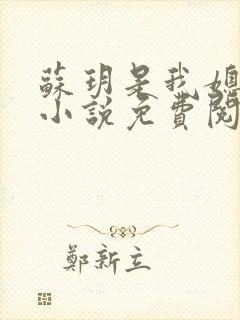 蘇玥是我媳
小說免費閱
鄭新立